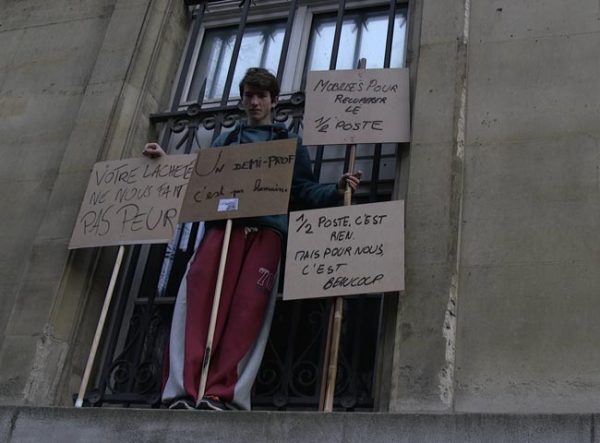 VOTRE LACHETÉ
NE NOUS FAIT
PAS PEUR
UN DEMI-PROF
c'est pas humain.
MOBILISÉS POUR
RECUPERER
LE
1/2 POSTE
1/2 POSTE, C'EST
RIEN.
MAIS POUR NOUS,
C'EST
BEAUCOUP